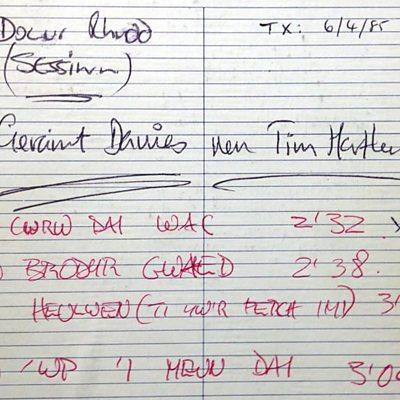 Docur Rhodd TX: 6/4/85
(SESSIWN)
Geraint Davies neu Tim Hartley
CWRW DAI WAC 2'32
BRODYR GWAED 2'38.
HEULWEN (TI YW'R FERCH IMI) 3'
'WP 'I MEWN DAI 3'0